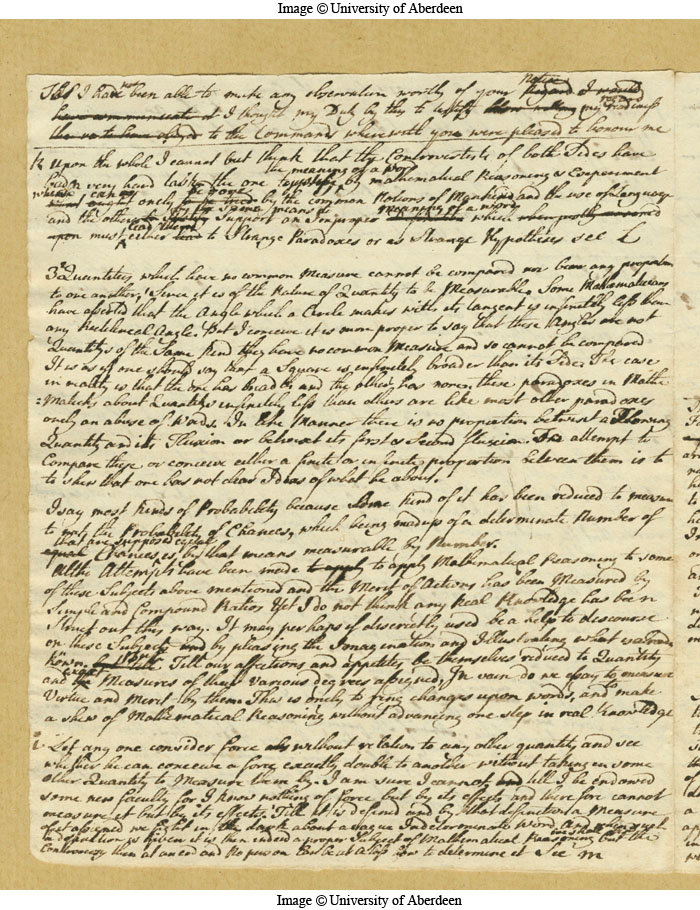 Image © University of Aberdeen
Tho' I have not been able to make any observation worthy of your Notice
I thought my Duty by this to testify my readiness
to the Commands wherewith you were pleased to honour me
k Upon the whole I cannot but think that the Controvertists of both Sides have
had a very hard task the one to prove by mathematical Reasoning & Experiment
the meaning of a word
which can only be by the common Notions of Mankind and the use of language
and the other to Support an improper meaning of a word which
must either lead them to Strange Paradoxes or as Strange Hypotheses see L
3 Quantities which have no common Measure cannot be compared nor bear any proportion
to one another, Since it is of the Nature of Quantity to be Measurable. Some Mathematicians
have asserted that the Angle which a Circle makes with its tangent is infinitely less than
any Rectilineal Angle. But I conceive it is more proper to say that these Angles are not
Quantitys of the Same Kind they have no common Measure and so cannot be compared
It is as if one should say that a Square is infinitely broader than its Side. The case
in reality is that the one has breadth and the other has none. these paradoxes in Mathe
=maticks about Quantitys infinitely less than others are like most other paradoxes
only an abuse of Words. In like Manner there is no proportion betwixt a Flowing
Quantity and its Fluxion or betwixt its first & Second Fluxion. To attempt to
Compare these, or conceive either a finite or infinite proportion between them is to
to shew that one has not clear Ideas of what he about.
I say most kinds of Probability because Some Kind of it has been reduced to measure
to wit the Probability of Chances, which being made up of a determinate Number of
that are supposed equal
Chances is by that means measurable by Number.
Attempts have been made to apply Mathematical Reasoning to some
of these Subjects above mentioned and the Merit of Actions has been Measured by
Simple and Compound Ratios Yet I do not think any Real Knowledge has been
Struck out this way. It may perhaps if discreetly used be a help to discourse
on these Subjects by pleasing the Imagination and Illustrating what was
known. Till our affections and appetites be themselves reduced to Quantity
and Measures of their various degrees assigned, In vain do we essay to measure
Virtue and Merit by them. This is only to ring changes upon words, and make
a shew of Mathematical Reasoning without advancing one step in real Knowledge
i Let any one consider force without relation to any other quantity and see
whether he can conceive a force exactly double to another without taking in some
other Quantity to Measure them by. I am sure I cannot, till I be endowed
some new faculty for I know nothing of Force but by its effects and therefore cannot
measure it but by its effects. Till it is defined and by that definition a Measure
of it assigned we fight in the dark about a vague Indeterminate Word. And when such
a definition is given it is then indeed a proper Subject of Mathematical Reasoning but the
Controversy then at an end and No person can be at a loss how to determine it See m
Image © University of Aberdeen